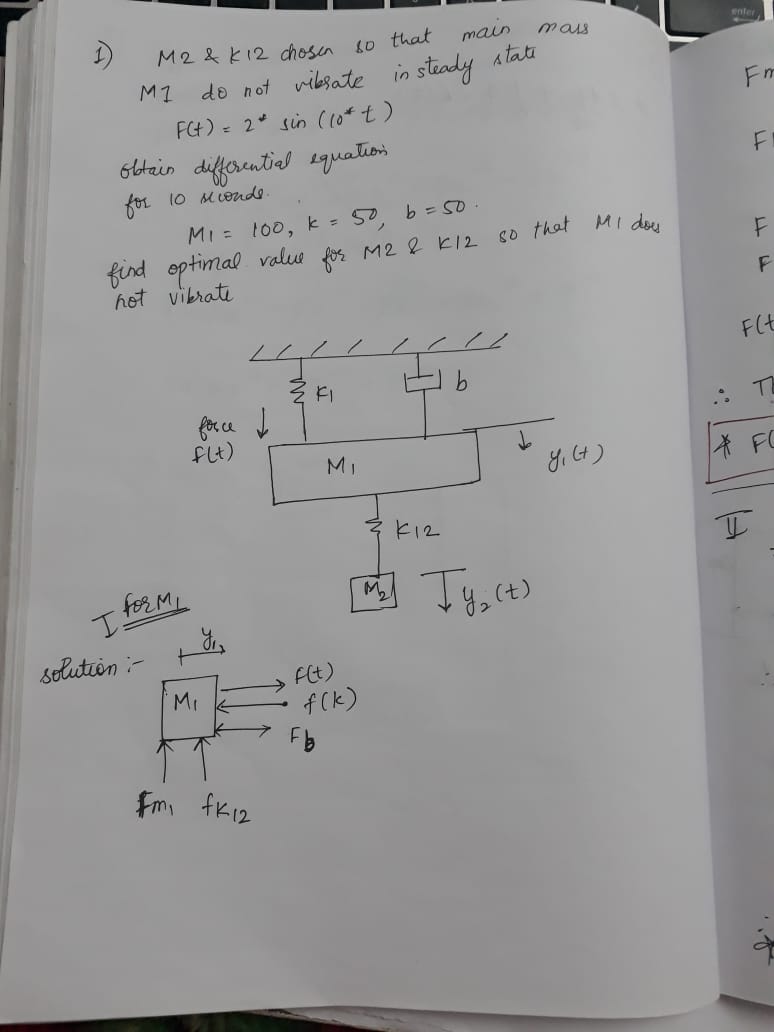 1) M2 & K12 chosen so that main mass
M1 do not vibrate in steady state
F(t) = 2* sin (10* t)
obtain differential equation
for 10 seconds.
M1 = 100, k = 50, b = 50.
find optimal value for M2 & K12 so that M1 does
not vibrate
K1
b
force
f(t)
M1
y1(t)
K12
M2
y2(t)
I for M1
solution :-
y1
M1
f(t)
f(k)
Fb
Fm1 fK12
enter
Fm
F
F
F
F(t
∴ T
* F(
II